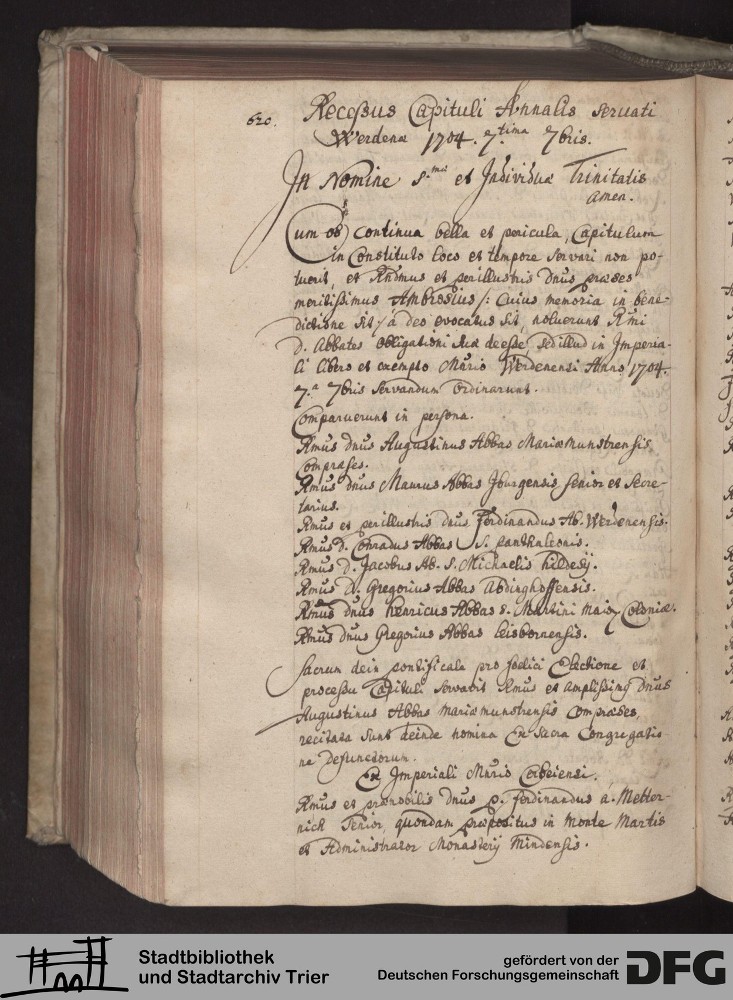 620.
Recessus Capituli Annalis seruati
Werdenæ 1704. 7.tima 7bris.
In Nomine S.mæ et Individuæ Trinitatis
amen.
Cum ob continua bella et pericula, Capitulum
in Constituto loco et tempore servari non po-
tuerit, et Rndmus et perillustris dnus præses
meritissimus Ambrosius /: Cuius memoria in bene-
dictione sit / à deo evocatus sit, noluerunt Rmi
D. Abbates obligationi suæ deesse sed illud in Imperia-
li libero et exempto Mnrio Werdenensi Anno 1704.
7.a 7bris servandum ordinarunt.
Comparuerunt in persona.
Rmus dnus Augustinus Abbas Mariæmunstrensis
Compræses.
Rmus dnus Maurus Abbas Iburgensis senior et secre-
tarius.
Rmus et perillustris dnus Ferdinandus Ab. Werdenensis.
Rmus D. Conradus Abbas S. Panthaleonis.
Rmus D. Jacobus Ab. S. Michaelis Hildesij.
Rmus D. Gregorius Abbas Abdinghoffensis.
Rmus dnus Henricus Abbas S. Martini Maior Coloniæ.
Rmus dnus Gregorius Abbas Leisbornensis.
Sacrum dein pontificale pro foelici Electione et
processu Capituli servavit Rmus et amplissimq dnus
Augustinus Abbas mariæmunstrensis Compræses,
recitata sunt deinde nomina Ex sacra Congregatio-
ne defunctorum.
Ex Imperiali Mnrio Corbeiensi.
Rmus et prænobilis dnus p. ferdinandus a. Metter-
nich Senior, quondam præpositus in Monte Martis
et Administrator Monasterij Mindensis.
Stadtbibliothek
und Stadtarchiv Trier
gefördert von der
Deutschen Forschungsgemeinschaft
DFG